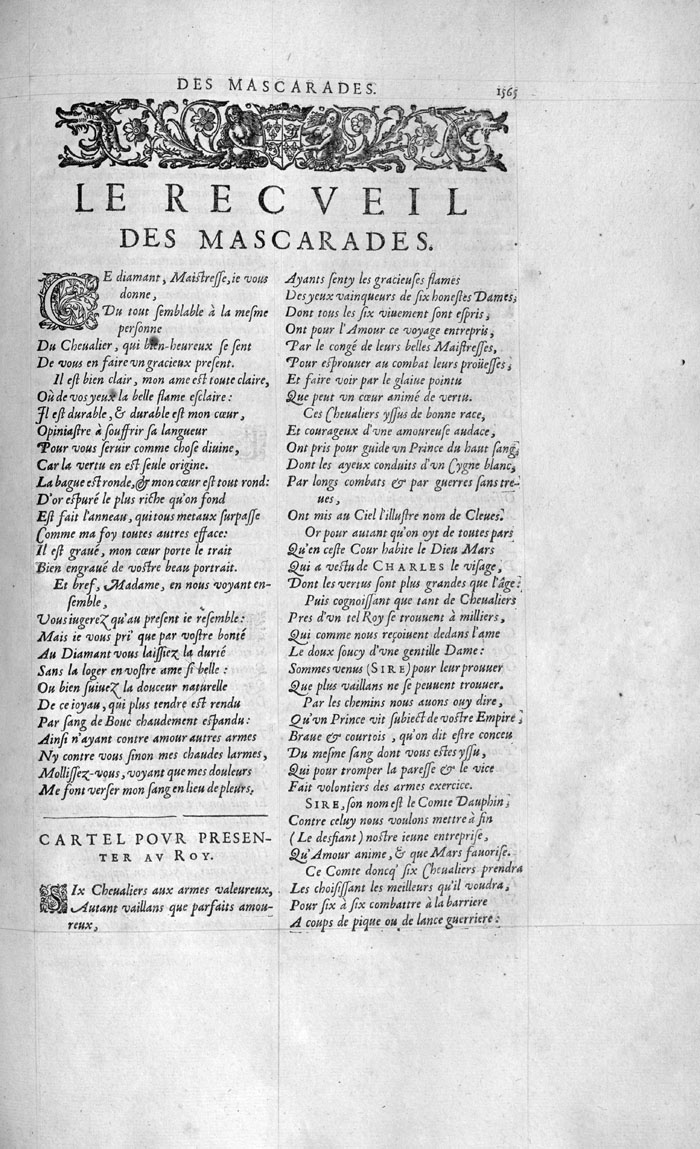 DES MASCARADES.
1565
LE RECVEIL
DES MASCARADES.
CE diamant, Maistresse, ie vous
donne,
Du tout semblable à la mesme
personne
Du Cheualier, qui bien-heureux se sent
De vous en faire vn gracieux present.
Il est bien clair, mon ame est toute claire,
Où de vos yeux la belle flame esclaire:
Il est durable, & durable est mon cœur,
Opiniastre à souffrir sa langueur
Pour vous seruir comme chose diuine,
Car la vertu en est seule origine.
La bague est ronde, & mon cœur est tout rond:
D'or espuré le plus riche qu'on fond
Est fait l'anneau, qui tous metaux surpasse
Comme ma foy toutes autres efface:
Il est graué, mon cœur porte le trait
Bien engraué de vostre beau portrait.
Et bref, Madame, en nous voyant en-
semble,
Vous iugerez qu'au present ie resemble:
Mais ie vous pri' que par vostre bonté
Au Diamant vous laissiez la durté
Sans la loger en vostre ame si belle:
Ou bien suiuez la douceur naturelle
De ce ioyau, qui plus tendre est rendu
Par sang de Bouc chaudement espandu:
Ainsi n'ayant contre amour autres armes
Ny contre vous sinon mes chaudes larmes,
Mollissez-vous, voyant que mes douleurs
Me font verser mon sang en lieu de pleurs.
CARTEL POVR PRESEN-
TER AV ROY.
SIx Cheualiers aux armes valeureux,
Autant vaillans que parfaits amou-
reux,
Ayants senty les gracieuses flames
Des yeux vainqueurs de six honestes Dames,
Dont tous les six viuement sont espris,
Ont pour l'Amour ce voyage entrepris,
Par le congé de leurs belles Maistresses,
Pour esprouuer au combat leurs proüesses,
Et faire voir par le glaiue pointu
Que peut vn cœur animé de vertu.
Ces Cheualiers yssus de bonne race,
Et courageux d'vne amoureuse audace,
Ont pris pour guide vn Prince du haut sang,
Dont les ayeux conduits d'vn Cygne blanc,
Par longs combats & par guerres sans tre-
ues,
Ont mis au Ciel l'illustre nom de Cleues.
Or pour autant qu'on oyt de toutes pars
Qu'en ceste Cour habite le Dieu Mars
Qui a vestu de CHARLES le visage,
Dont les vertus sont plus grandes que l'âge:
Puis cognoissant que tant de Cheualiers
Pres d'vn tel Roy se trouuent à milliers,
Qui comme nous reçoiuent dedans l'ame
Le doux soucy d'vne gentille Dame:
Sommes venus (SIRE) pour leur prouuer
Que plus vaillans ne se peuuent trouuer.
Par les chemins nous auons ouy dire,
Qu'vn Prince vit subiect de vostre Empire,
Braue & courtois, qu'on dit estre conceu
Du mesme sang dont vous estes yssu,
Qui pour tromper la paresse & le vice
Fait volontiers des armes exercice.
SIRE, son nom est le Comte Dauphin,
Contre celuy nous voulons mettre à fin
(Le desfiant) nostre ieune entreprise,
Qu'Amour anime, & que Mars fauorise.
Ce Comte doncq' six Cheualiers prendra
Les choisissant les meilleurs qu'il voudra,
Pour six à six combattre à la barriere
A coups de pique ou de lance guerriere: